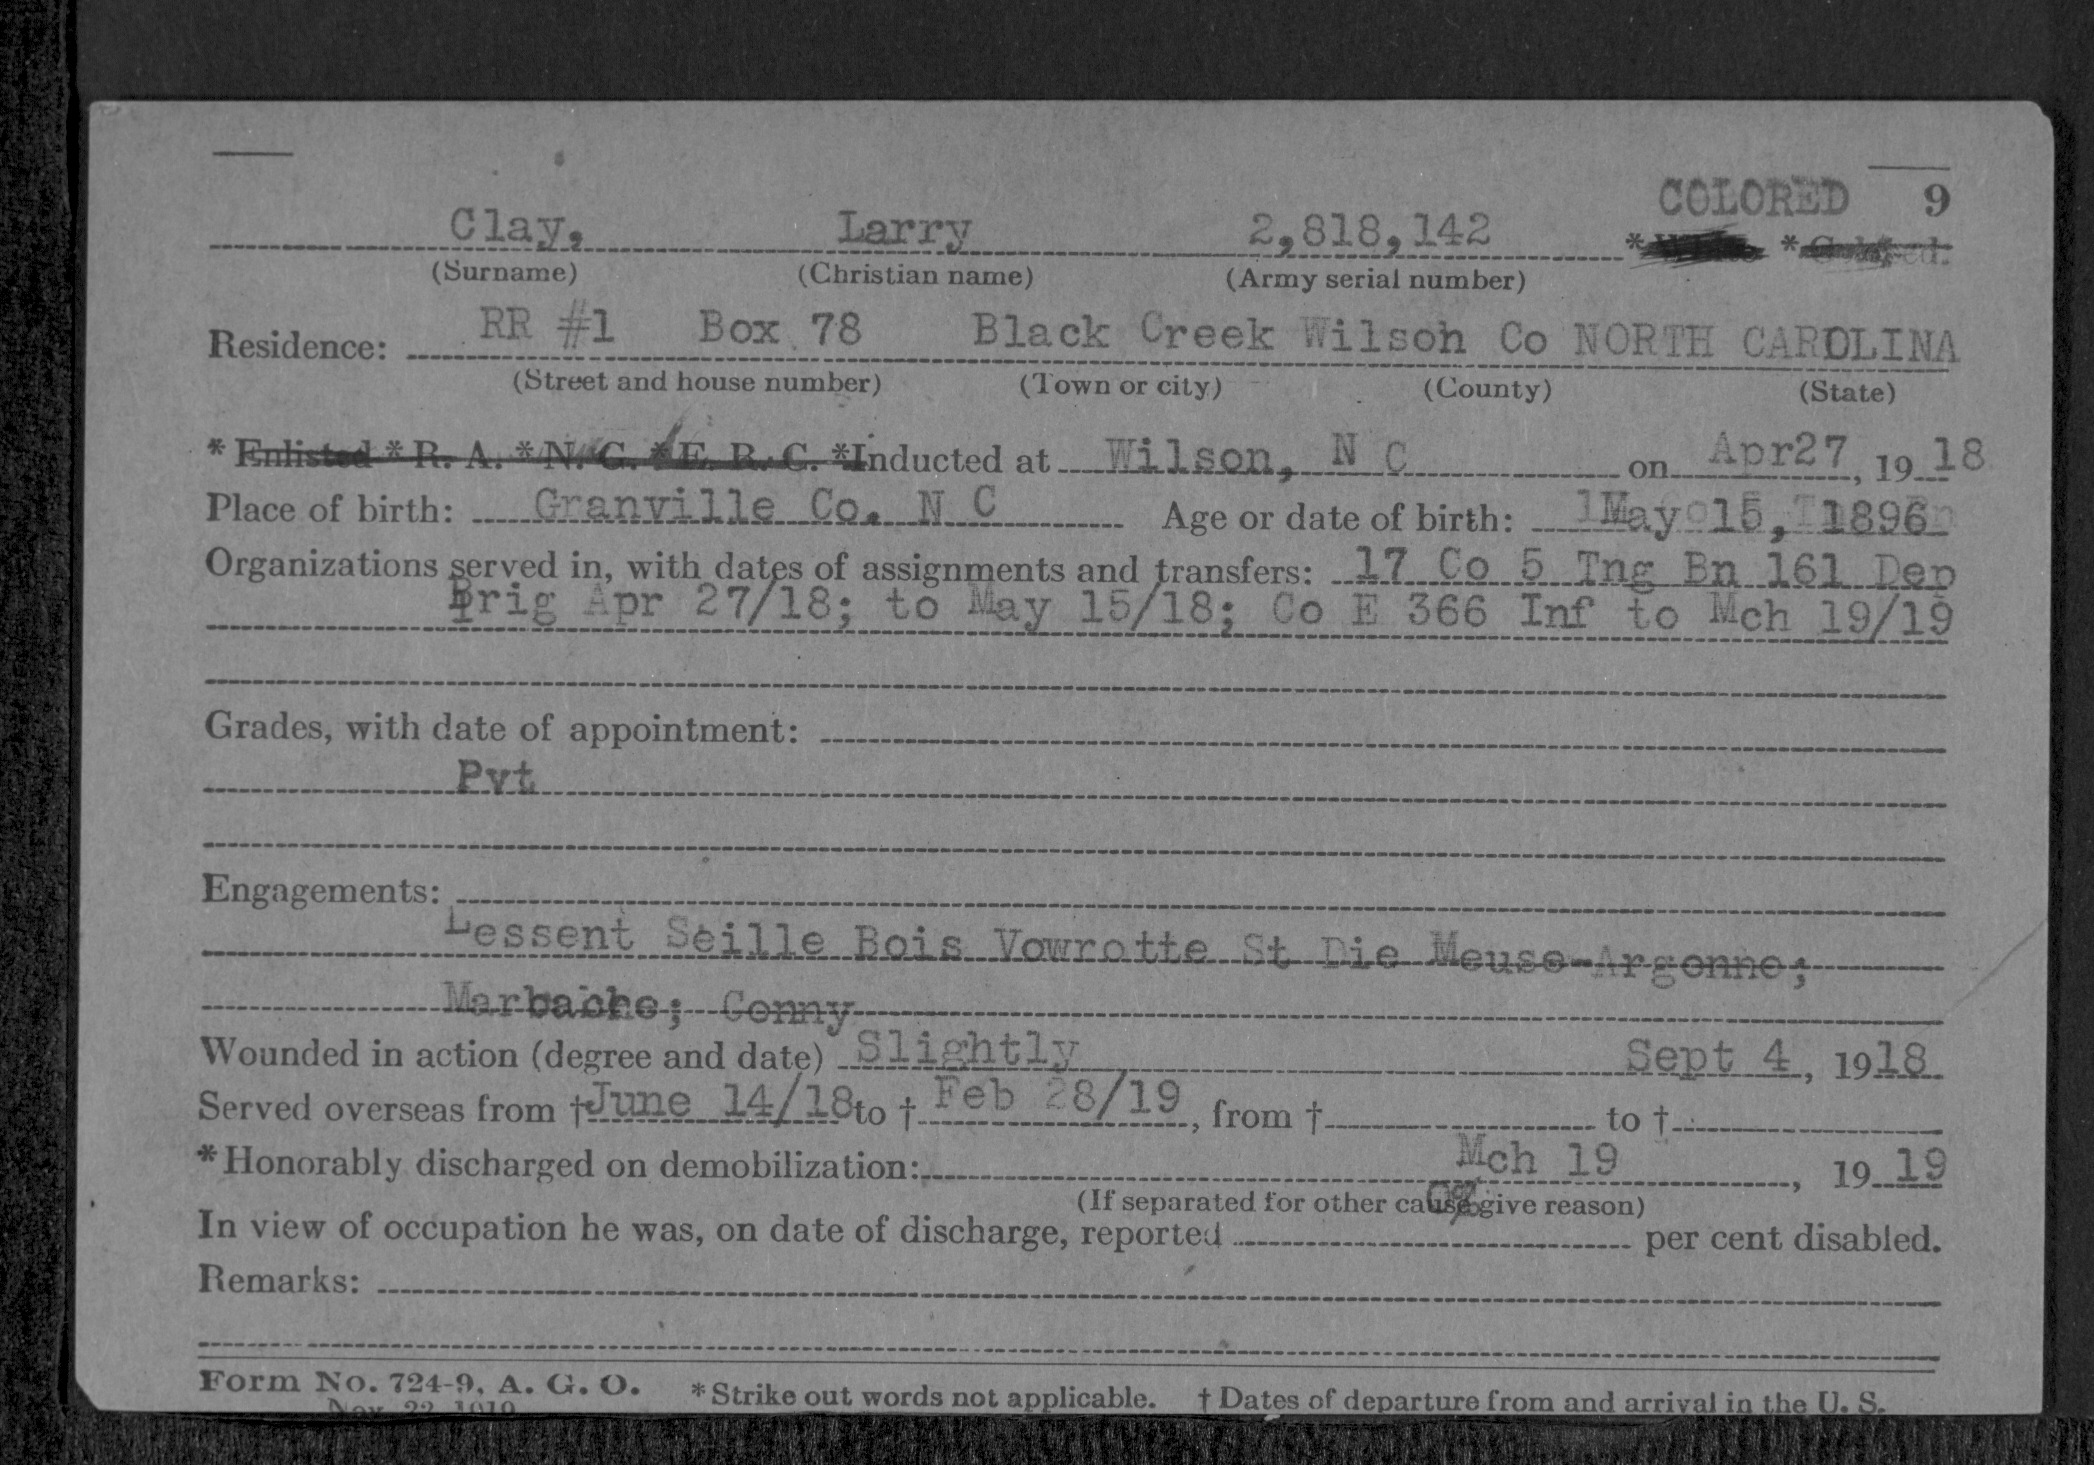 COLORED 9
Clay, Larry 2,818,142 * *
(Surname) (Christian name) (Army serial number)
Residence: RR #1 Box 78 Black Creek Wilson Co NORTH CAROLINA
(Street and house number) (Town or city) (County) (State)
* Enlisted * R. A. * N. G. * E. R. C. *Inducted at Wilson, N C on Apr27, 19 18
Place of birth: Granville Co. N C Age or date of birth: May 15, 1896
Organizations served in, with dates of assignments and transfers: 17 Co 5 Tng Bn 161 Dep
Brig Apr 27/18; to May 15/18; Co E 366 Inf to Mch 19/19
Grades, with date of appointment:
Pvt
Engagements:
Lessent Seille Bois Vowrotte St Die Meuse-Argonne;
Marbache; Conny
Wounded in action (degree and date) Slightly Sept 4, 1918
Served overseas from †June 14/18 to † Feb 28/19, from † to †
*Honorably discharged on demobilization: Mch 19, 19 19
(If separated for other cause give reason)
In view of occupation he was, on date of discharge, reported per cent disabled.
Remarks:
Form No. 724-9, A. G. O. *Strike out words not applicable. † Dates of departure from and arrival in the U. S.
Nov. 22, 1919